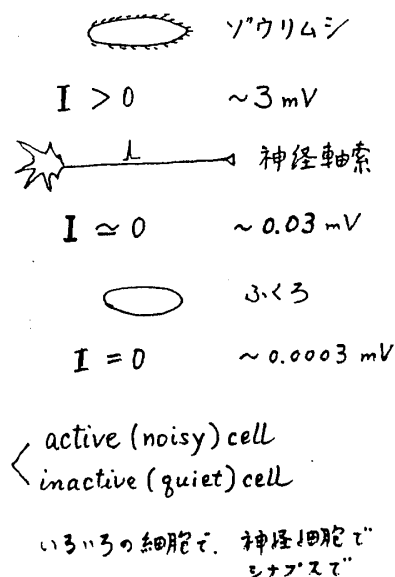 ゾウリムシ
I > 0 ~3 mV
神経軸索
I ≃ 0 ~0.03 mV
ふくろ
I = 0 ~0.0003 mV
active (noisy) cell
inactive (quiet) cell
いろいろの細胞で、神経細胞で
シナプスで